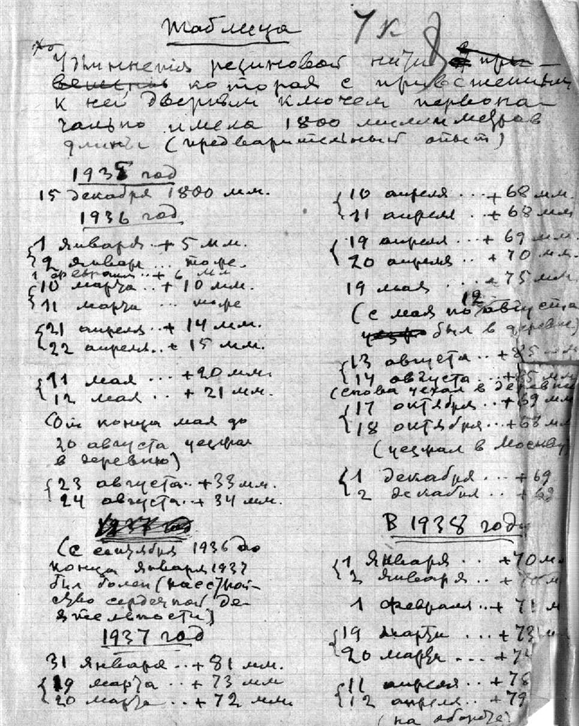 Таблица
Удлиннения резиновой нити
которая с привешенным
к ней дверным ключем первона-
чально имела 1800 миллиметров
длины (предварительный опыт)
1935 год
15 декабря 1800 мм.
1936 год
1 января .. + 5 мм.
2 январ ... то же.
1 февраля .. + 6 мм
10 марта .. + 10 мм.
11 марта ... то же
21 апреля .. + 14 мм.
22 апрель .. + 15 мм.
11 мая ... + 20 мм.
12 мая ... + 21 мм.
(От конца мая до
20 августа уезжал
в деревню)
23 августа .. + 33 мм.
24 августа .. + 34 мм.
1937 год
(с сентября 1936 до
конца января 1937
был болен (расстрой-
ство сердечной де-
ятельности)
1937 год
31 января .. + 81 мм.
19 марта .. + 73 мм
20 марта ... + 72 мм.
10 апреля ... + 68 мм.
11 апреля ... + 68 мм
19 апреля ... + 69 мм.
20 апреля .. + 70 мм.
19 мая ... + 75 мм.
(с мая по 12 августа
был в деревне)
13 августа ... + 85 мм
14 августа ... + 85 мм.
(снова уехал в деревню
17 октября .. + 69 мм
18 октября .. + 68 мм
(уезжал в Москву
1 декабря .. + 69
2 декабря .. + 69
В 1938 году
1 января .. + 70 м
2 января .. +
1 февраля .. + 71 м
19 марта ... + 73 м
20 марта ... + 74
11 апреля ... + 76
12 апреля ... + 79
(на обороте)